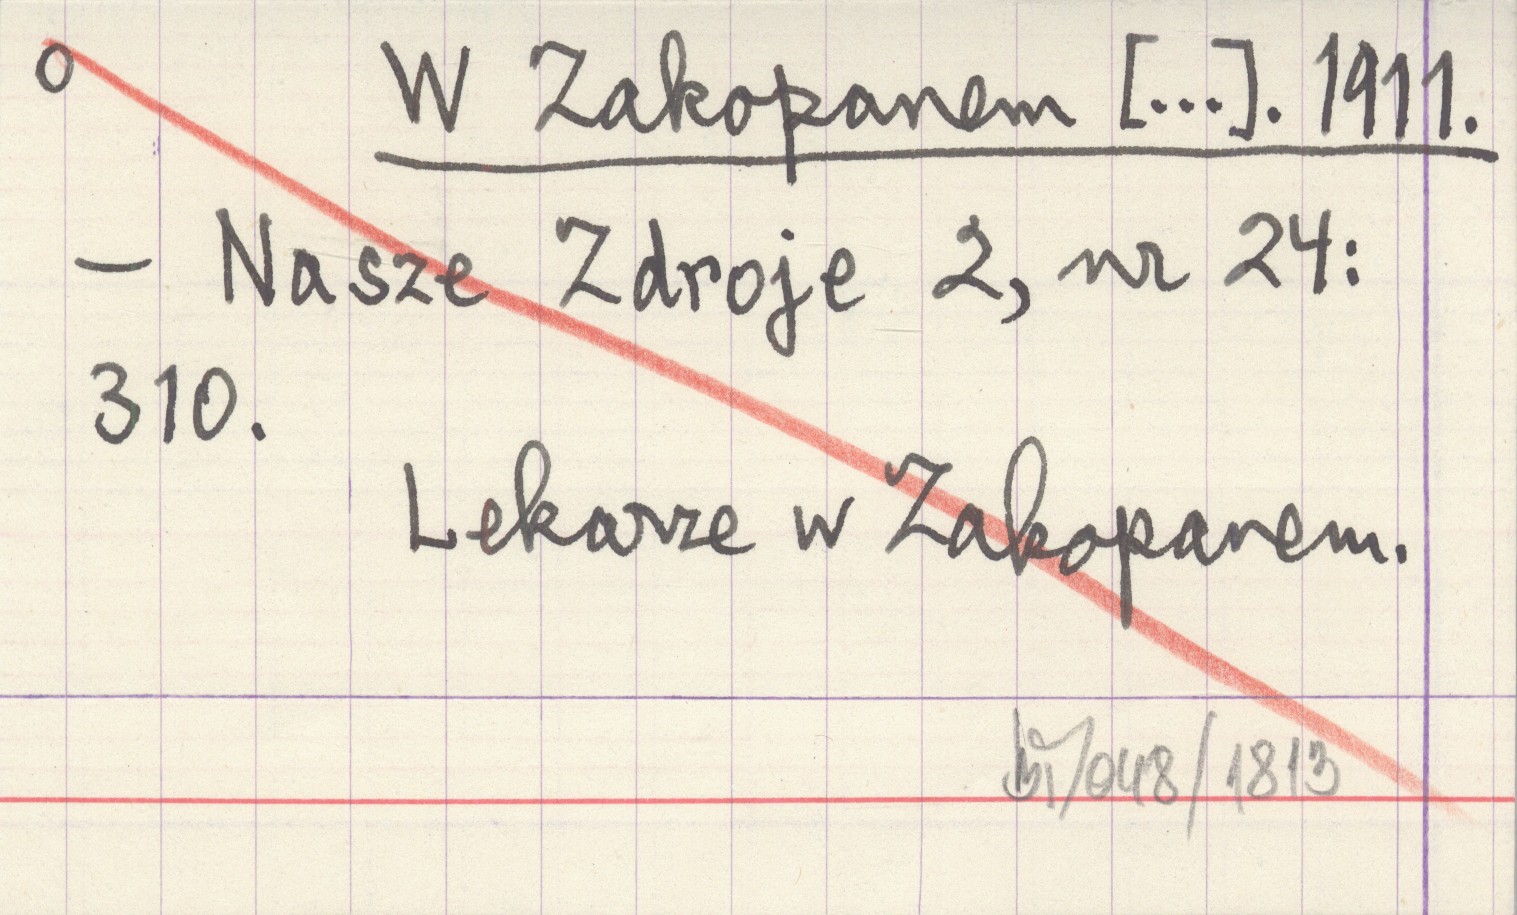 o W Zakopanem [...]. 1911.
— Nasze Zdroje 2, nr 24:
310.
Lekarze w Zakopanem.
/048/1813